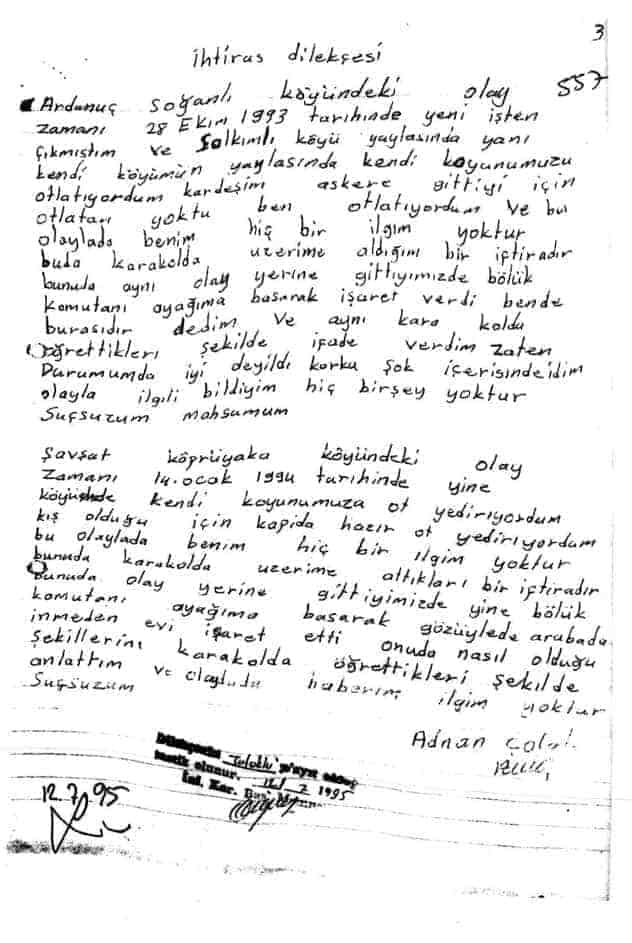 3
ihtiras dilekçesi
557
Ardanuç Soğanlı köyündeki olay
zamanı 28 Ekim 1993 tarihinde yeni işten
çıkmıştım ve Salkımlı köyü yaylasında yani
kendi köyümün yaylasında kendi koyunumuzu
otlatıyordum kardeşim askere gittiyi için
otlatan yoktu ben otlatıyordum ve bu
olaylada benim hiç bir ilgim yoktur
buda karakolda uzerime aldığım bir iftiradır
bunuda aynı olay yerine gittiyimizde bölük
komutanı ayağıma basarak işaret verdi bende
burasıdır dedim ve aynı kara kolda
öğrettikleri şekilde ifade verdim zaten
Durumumda iyi deyildi korku şok içerisinde'idim
olayla ilgili bildiyim hiç birşey yoktur
Suçsuzum mahsumum
Şavşat köprüyaka köyündeki olay
Zamanı 14.ocak 1994 tarihinde yine
köyümde kendi koyunumuza ot yediriyordum
kış olduğu için kapida hazır ot yediriyordum
bu olaylada benim hiç bir ilgim yoktur
bunuda karakolda uzerime attıkları bir iftiradır
bunuda olay yerine gittiyimizde yine bölük
komutanı ayağıma basarak gözüylede arabada
inmeden evi işaret etti onuda nasıl olduğu
şekillerini karakolda öğrettikleri şekilde
anlattım ve olayluda haberim ilgim yoktur
Suçsuzum
Adnan
olunur. 1995
12.7.95